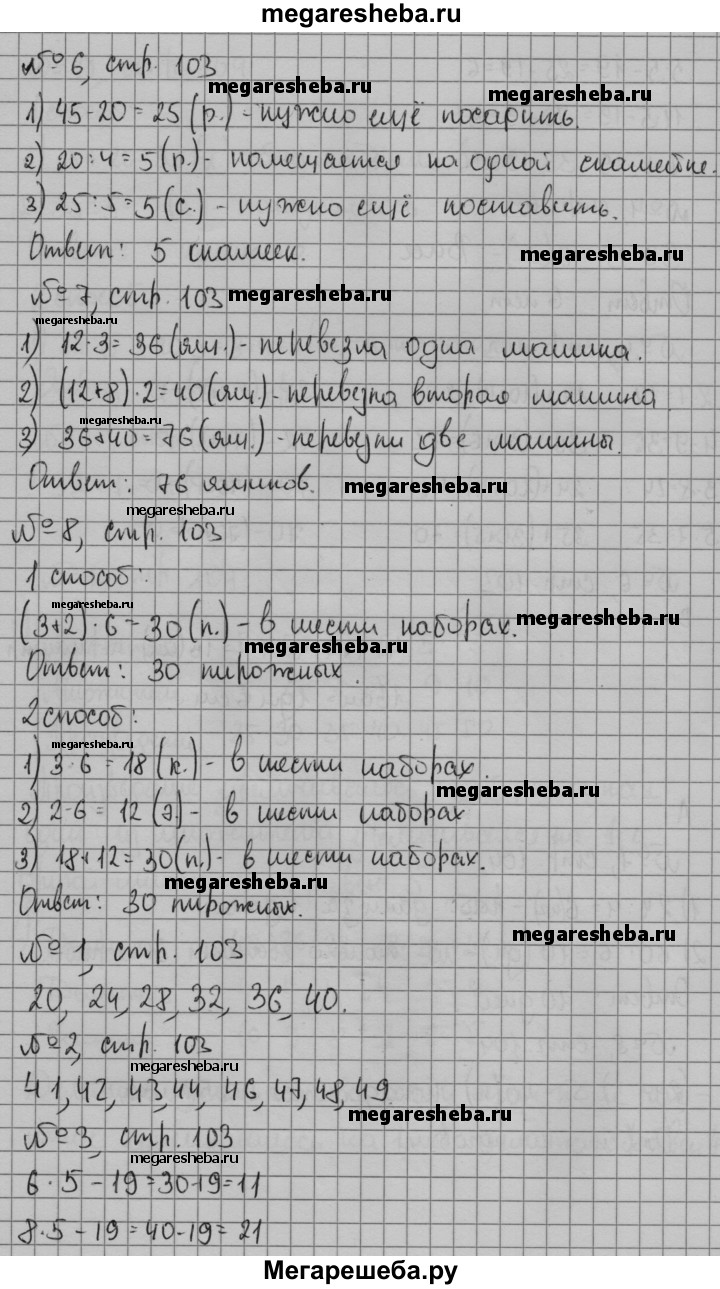 megaresheba.ru
№6, стр. 103
megaresheba.ru
megaresheba.ru
1) 45-20=25 (р.) - нужно ещё посадить.
2) 20:4=5 (р.) - помещается на одной скамейке.
3) 25:5=5 (с.) - нужно ещё поставить.
Ответ: 5 скамеек.
megaresheba.ru
№7, стр. 103
megaresheba.ru
megaresheba.ru
1) 12·3=36 (ящ.) - перевезла одна машина.
2) (12+8)·2=40 (ящ.) - перевезла вторая машина
megaresheba.ru
3) 36+40=76 (ящ.) - перевезли две машины.
Ответ: 76 ящиков.
megaresheba.ru
megaresheba.ru
№8, стр. 103
1 способ:
megaresheba.ru
(3+2)·6=30 (п.) - в шести наборах.
megaresheba.ru
megaresheba.ru
Ответ: 30 пирожных.
2 способ:
megaresheba.ru
1) 3·6=18 (к.) - в шести наборах.
megaresheba.ru
2) 2·6=12 (э.) - в шести наборах
3) 18+12=30 (п.) - в шести наборах.
megaresheba.ru
Ответ: 30 пирожных.
megaresheba.ru
№1, стр. 103
20, 24, 28, 32, 36, 40.
№2, стр. 103
megaresheba.ru
41, 42, 43, 44, 46, 47, 48, 49.
megaresheba.ru
№3, стр. 103
megaresheba.ru
6·5-19=30-19=11
8·5-19=40-19=21
Мегарешеба.ру